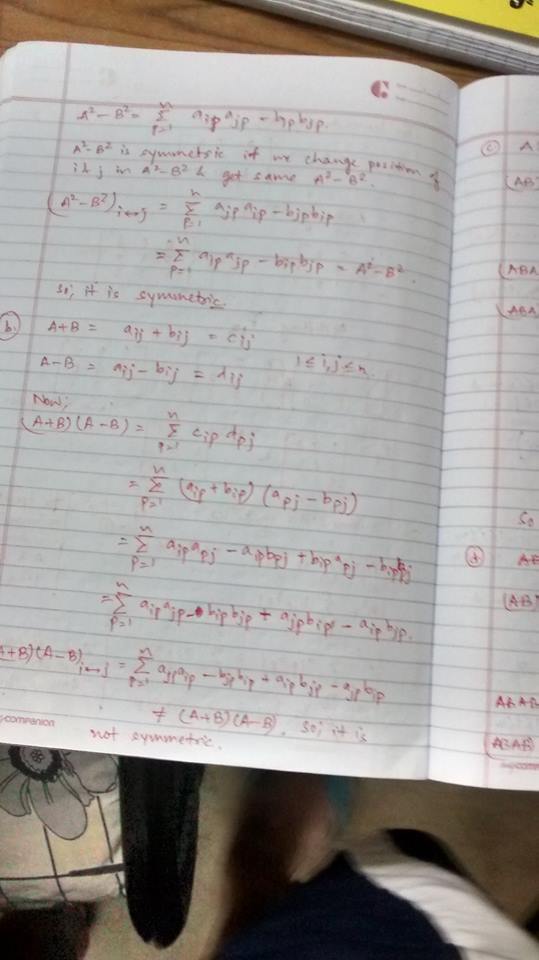 A²-B² = Σ_{p=1}^{n} a_{ip} a_{jp} - b_{ip} b_{jp}.
A²-B² is symmetric if we change position of
i & j in A²-B² & get same A²-B².
(A²-B²)_{i↔j} = Σ_{p=1}^{n} a_{jp} a_{ip} - b_{jp} b_{ip}
= Σ_{p=1}^{n} a_{ip} a_{jp} - b_{ip} b_{jp} = A²-B².
So; it is symmetric.
b. A+B = a_{ij} + b_{ij} = c_{ij}
A-B = a_{ij} - b_{ij} = d_{ij} 1 ≤ i,j ≤ n.
Now;
(A+B)(A-B) = Σ_{p=1}^{n} c_{ip} d_{pj}
= Σ_{p=1}^{n} (a_{ip} + b_{ip}) (a_{pj} - b_{pj})
= Σ_{p=1}^{n} a_{ip} a_{pj} - a_{ip} b_{pj} + b_{ip} a_{pj} - b_{ip} b_{pj}
= Σ_{p=1}^{n} a_{ip} a_{jp} - b_{ip} b_{jp} + a_{jp} b_{ip} - a_{ip} b_{jp}.
A+B)(A-B)_{i↔j} = Σ_{p=1}^{n} a_{jp} a_{ip} - b_{jp} b_{ip} + a_{ip} b_{jp} - a_{jp} b_{ip}
≠ (A+B)(A-B). So; it is
not symmetric.
companion
c A
(AB)
(ABA
(ABA
So
d AB
(AB)
ABAB
(ABAB)